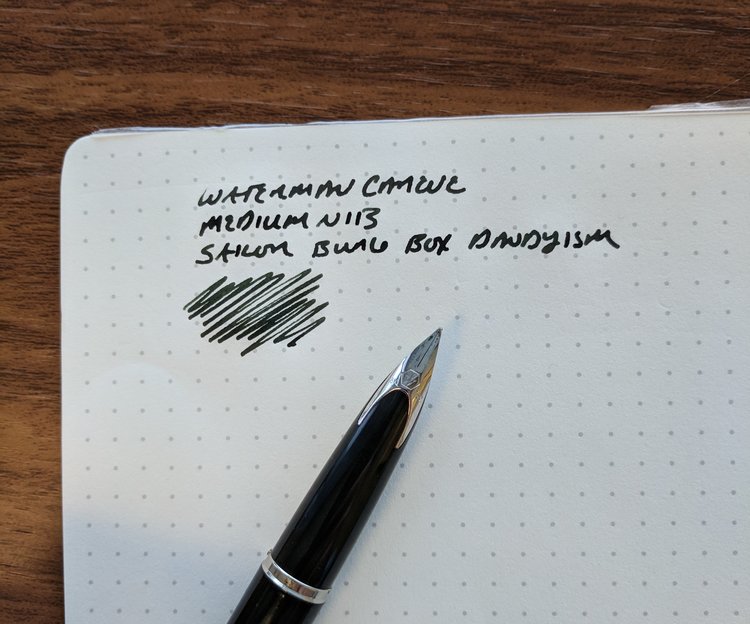 WATERMAN CARENE
MEDIUM NIB
SAILOR BUNG BOX DANDYISM